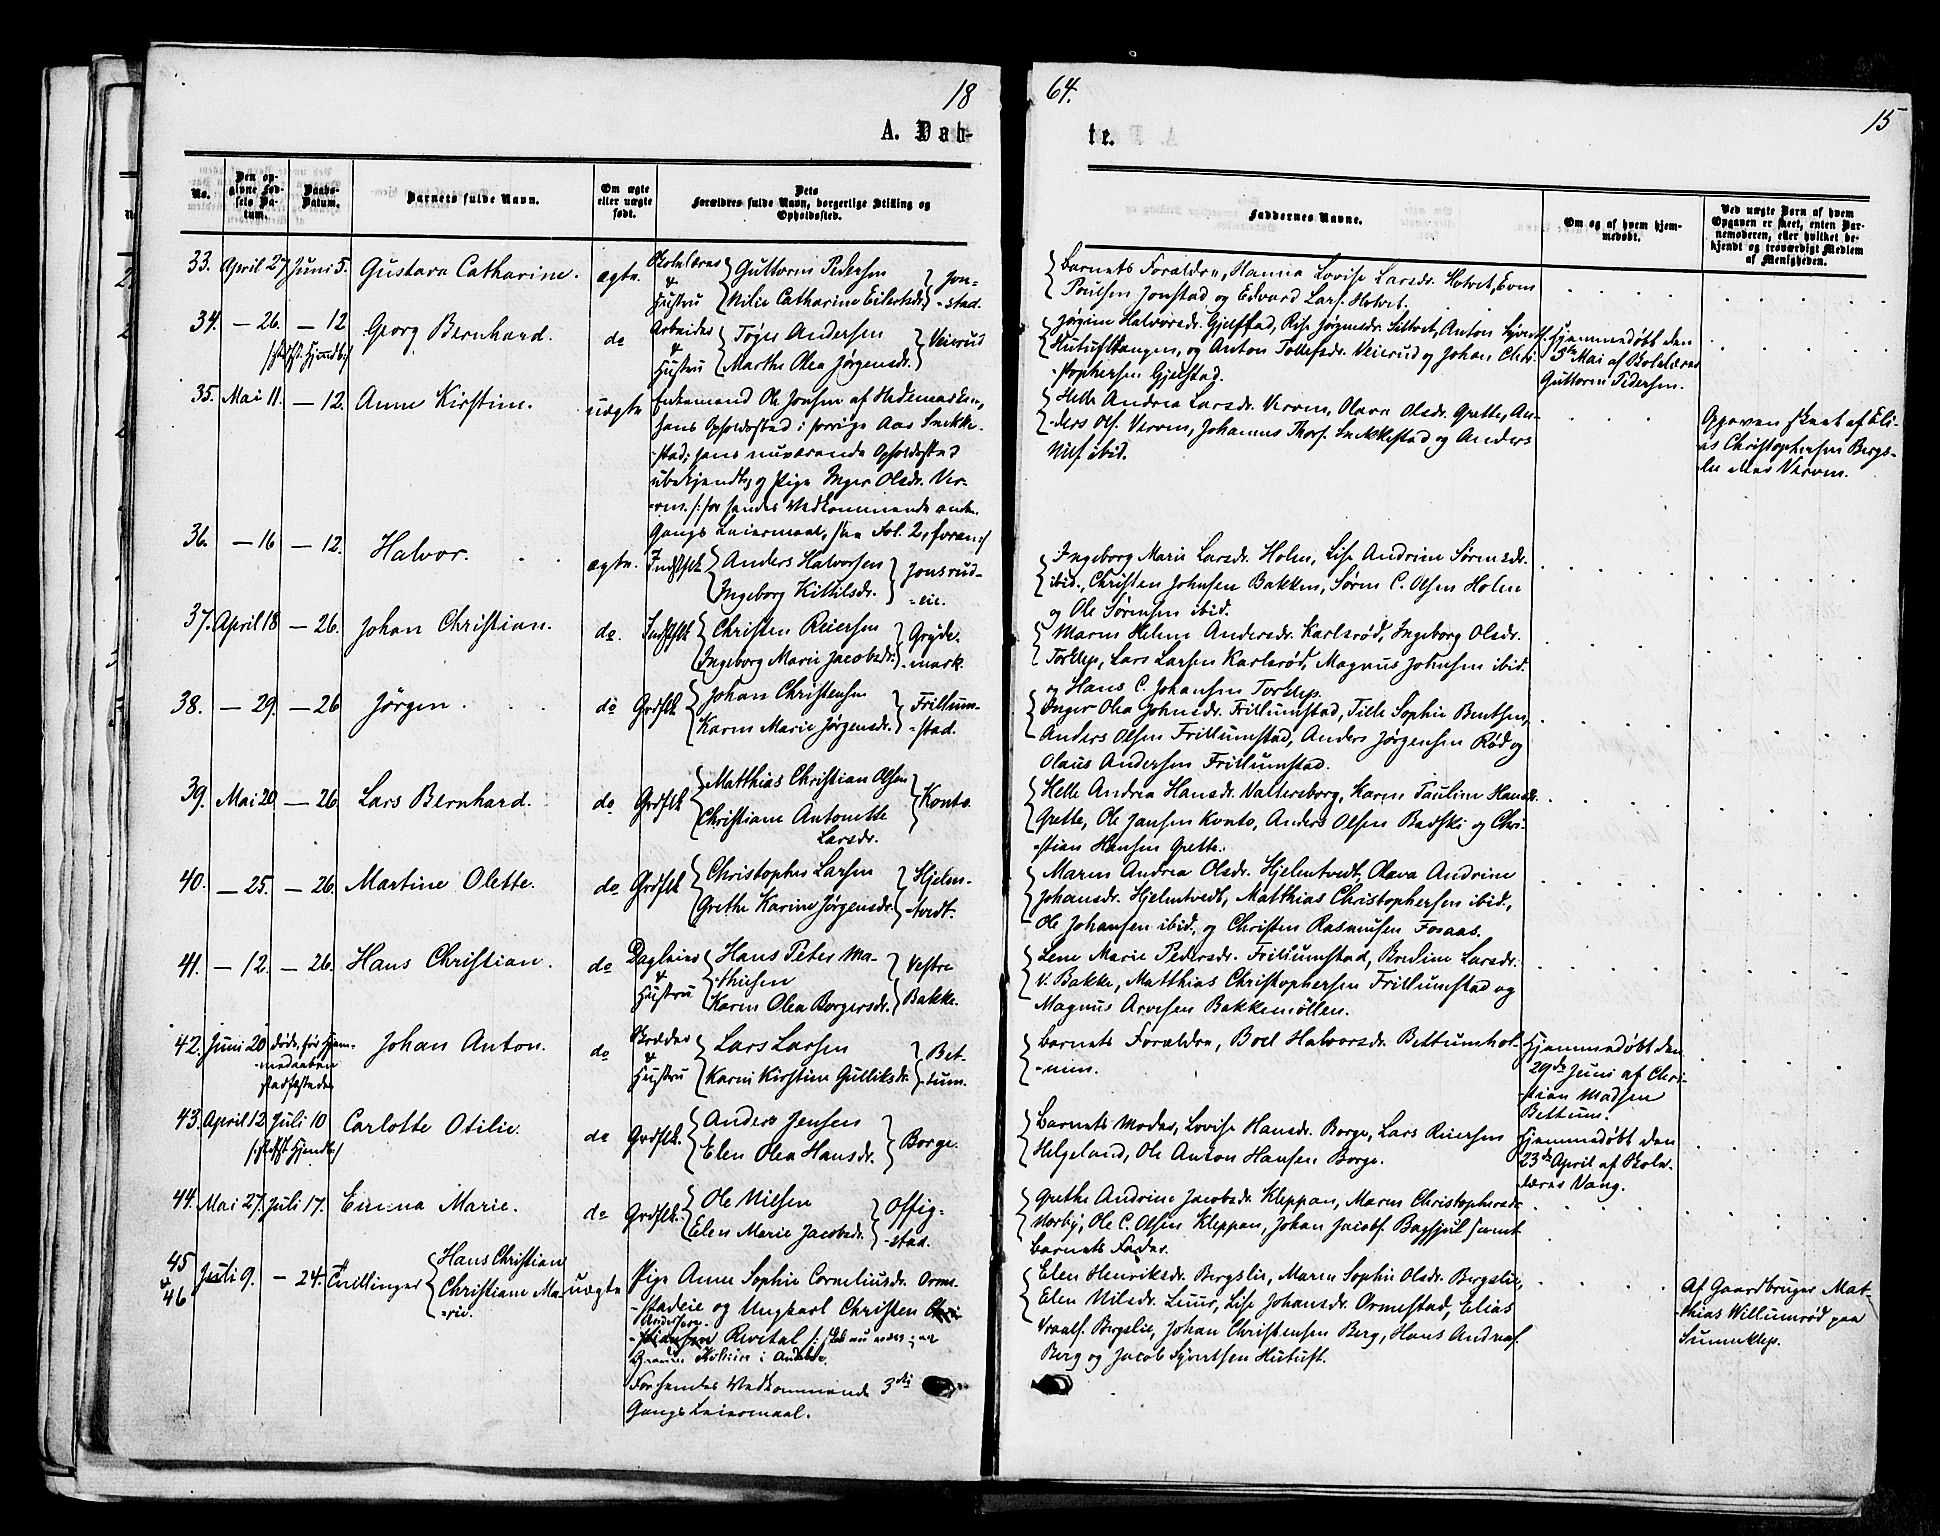 18
64.
15
A. Dab-
te.
No.
Den op-
givne Fød-
sels Da-
tum.
Daabs-
Datum.
Barnets fulde Navn.
Om ægte
eller uægte
født.
Dets
Forældres fulde Navn, borgerlige Stilling og
Opholdssted.
Faddernes Navne.
Om og af hvem hjem-
medøbt.
Ved uægte Børn af hvem
Opgaven er skeet, enten Bar-
nemoderen, eller hvilket be-
kjendt og troværdigt Medlem
af Menigheden.
33. April 27 Juni 5. Gustava Catharine. ægte. Skolelærer & Hustru Guttorm Pedersen
Nilie Catharine Eilertsdr. Jon-
-stad.
Barnets Forældre, Hanna Lovise Larsdr. Hotvet, Even
Poulsen Jonstad og Edvard Lars. Hotvet.
34. — 26. — 12 Georg Bernhard. do Arbeider & Hustru Töger Andersen
Marthe Olea Jörgensdr. Veierud
Jørgine Halvorsdr. Gjelstad, Rise Jørgensdr. Anton
Hutuftangen, og Anton Tollefsdr. Veierud og Johan Chri-
-stophersen Gjelstad.
Hjemmedøbt den
3de Mai af Skolelærer
Guttorm Pedersen.
35. Mai 11. — 12. Anne Kirstine. uægte Enkemand Ole Jonsen af Hedemarken,
hans Opholdssted i forrige Aar Snekke-
-stad; hans nuværende Opholdssted
ubekjendt, og Pige Inger Olsdr. Ver-
-ven. /: for hendes Vedkommende anden
Gangs Leiermaal, see Fol. 2, foran:/
Helle Andrea Larsdr. Verven, Olava Olsdr. Grette, An-
-ders Ols. Verven, Johannes Thors. Snekkestad og Anders
Nils ibid.
Opgaven skeet af Eli-
as Christophersen Bergs-
lie Verven.
36. — 16 — 12. Halvor. ægte. Indstflk Anders Halvorsen
Ingeborg Kittilsdr. Jonsrud-
-eie.
Ingeborg Marie Larsdr. Holm, Lise Andrine Sørensdr.
ibid., Christen Johnsen Bakken, Søren C. Olsen Holm
og Ole Sørensen ibid.
37. April 18 — 26. Johan Christian. do. Indstflk Christen Reiersen
Ingeborg Marie Jacobsdr. Gryde-
-mark.
Maren Helene Andersdr. Karlsrød, Ingeborg Olsdr.
Torklep, Lars Larsen Karlsrød, Magnus Johnsen ibid.
og Hans C. Johansen Torklep.
38. — 29. — 26 Jørgen. do Grdflk Johan Christensen
Karen Marie Jørgensdr. Frillum-
-stad.
Inger Olea Johnsdr. Frillumstad, Tille Sophie Bentsen,
Anders Olsen Frillumstad, Anders Jørgensen Rød og
Olaus Andersen Frillumstad.
39. Mai 20 — 26 Lars Bernhard. do Grdflk Matthias Christian Olsen
Christiane Antonette
Larsdr. Konto.
Helle Andrea Hansdr. Valtersborg, Karen Pauline Hansdr.
Grette, Ole Jansen Konto, Anders Olsen Badski og Chri-
-stian Hansen Grette.
40. — 25. — 26. Martine Olette. do Grdflk Christopher Larsen
Grethe Karine Jørgensdr. Hjelm-
-tvedt.
Maren Andrea Olsdr. Hjelmtvedt, Olava Andrine
Johansdr. Hjelmtvedt, Matthias Christophersen ibid.,
Ole Johansen ibid. og Christen Rasmusen Fosaas.
41. — 12. — 26. Hans Christian. do Dagleier & Hustru Hans Peter Ma-
-thisen
Karen Olea Borgersdr. Vestre
Bakke.
Lene Marie Pedersdr. Frillumstad, Bredine Larsdr.
V. Bakke, Matthias Christophersen Frillumstad og
Magnus Arvesen Bakkemöllen.
42. Juni 20 döde, før Hjem-
-medaaben
stadfæstedes Johan Anton. do Skræder & Hustru Lars Larsen
Karen Kirstine Gulliksdr. Bet-
-tum.
Barnets Forældre, Boel Halvorsdr. Bettumhol-
-men.
Hjemmedøbt den
29de Juni af Chri-
-stian Madsen
Bettum.
43. April 12 Juli 10
/:stdfst. Hjmdb:/ Carlotte Otilie. do Grdflk. Anders Jensen
Elen Olea Hansdr. Borge.
Barnets Moder, Lovise Hansdr. Borge, Lars Reiersen
Helgeland, Ole Anton Hansen Borge.
Hjemmedøbt den
23de April af Skole-
lærer Vang.
44. Mai 27. Juli 17. Emma Marie. do Grdflk. Ole Nilsen
Elen Marie Jacobsdr. Offig-
-stad.
Grethe Andrine Jacobsdr. Kleppan, Maren Christophersdr.
Norby, Ole C. Olsen Kleppan, Johan Jacobs. samt
Barnets Fader.
45
&
46 Juli 9. — 24. Tvillinger Hans Christian
Christiane Ma-
-rie. uægte Pige Anne Sophie Corneliusdr. Orme-
-stadeie og Ungkarl Christen
Andersen
Revital /: skal nu være
i Andebu.
For hendes Vedkommende 3die
Gangs Leiermaal.
Elen Henriksdr. Bergslie, Maren Sophie Olsdr. Bergslie,
Elen Nilsdr. Luur, Lise Johansdr. Ormestad, Elias
Bergslie, Johan Christensen Berg, Hans Andreas.
Berg og Jacob Syvertsen Hutuft.
Af Gaardbruger Mat-
-thias Willumrød paa
Summeklep.